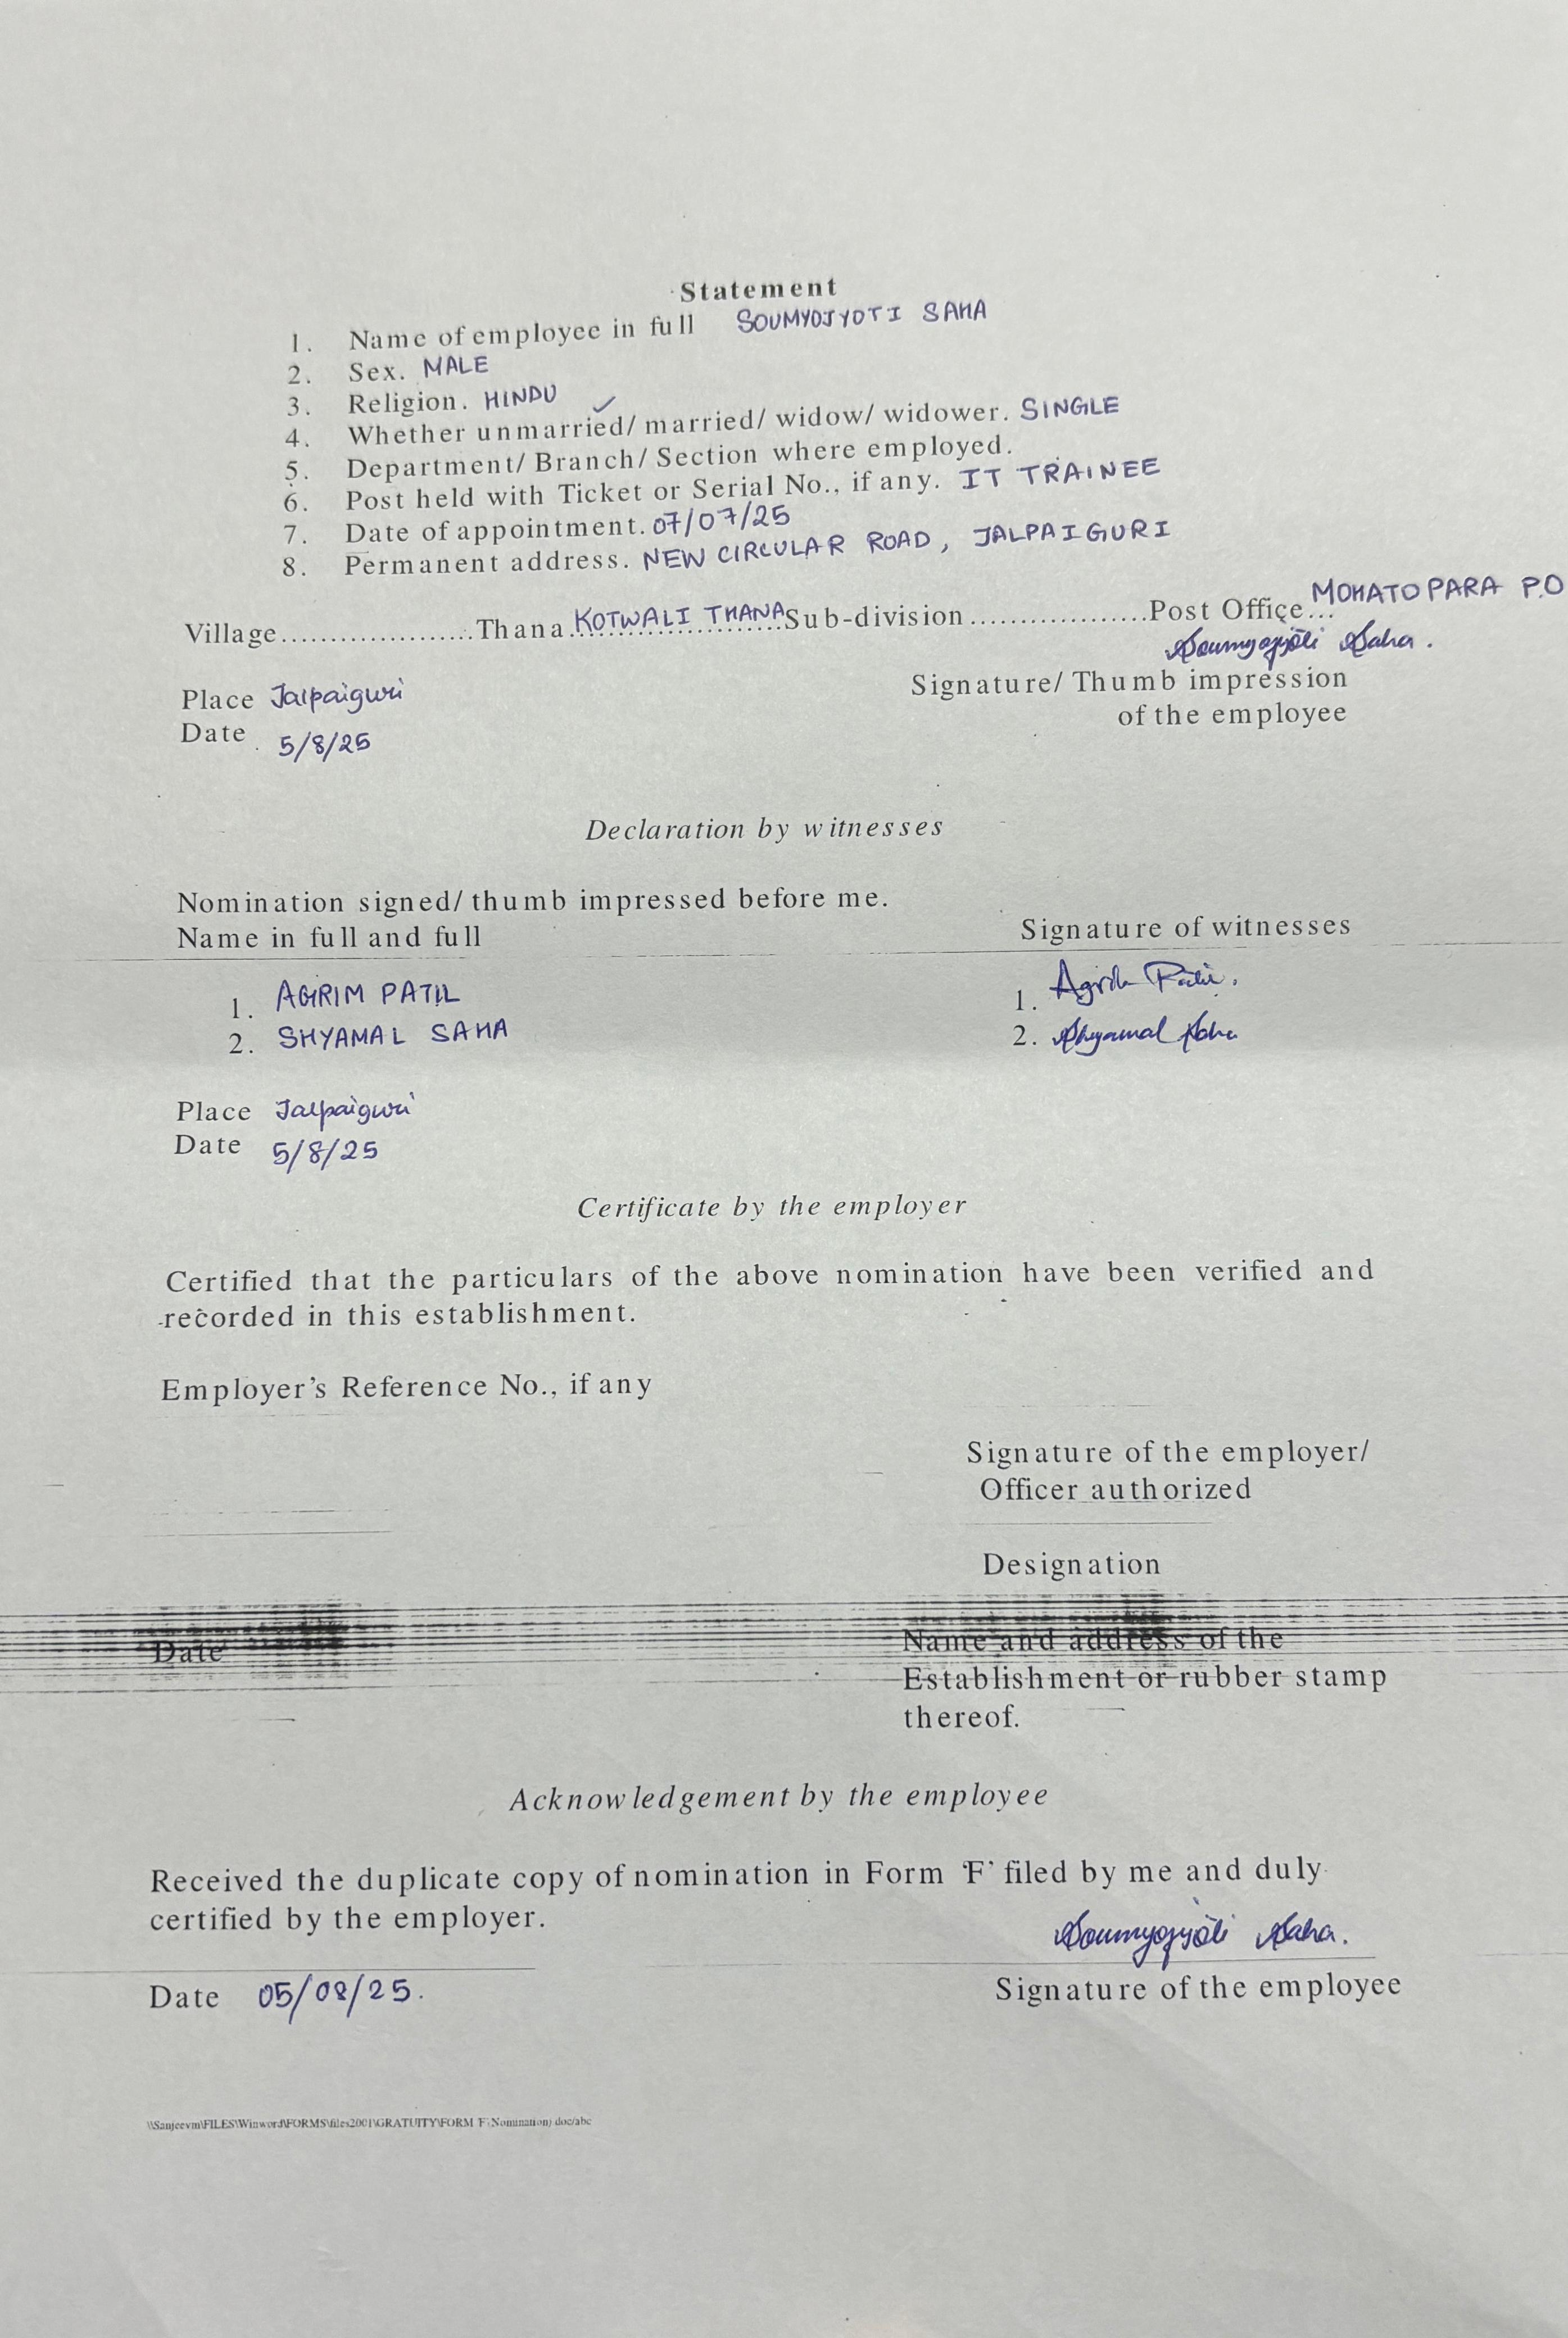 Statement
1. Name of employee in full SOUMYOJYOTI SAHA
2. Sex. MALE
3. Religion. HINDU
4. Whether unmarried/ married/ widow/ widower. SINGLE
5. Department/ Branch/ Section where employed.
6. Post held with Ticket or Serial No., if any. IT TRAINEE
7. Date of appointment. 07/07/25
8. Permanent address. NEW CIRCULAR ROAD, JALPAIGURI
Village....................Thana.KOTWALI THANA Sub-division..................Post Office... MOHATO PARA P.O
Soumyojyoti Saha.
Place Jalpaiguri
Signature/ Thumb impression
of the employee
Date 5/8/25
Declaration by witnesses
Nomination signed/ thumb impressed before me.
Name in full and full
Signature of witnesses
1. AGRIM PATIL 1. Agrim Patil.
2. SHYAMAL SAHA 2. Shyamal Saha
Place Jalpaiguri
Date 5/8/25
Certificate by the employer
Certified that the particulars of the above nomination have been verified and
recorded in this establishment.
Employer's Reference No., if any
Signature of the employer/
Officer authorized
Designation
Date
Name and address of the
Establishment or rubber stamp
thereof.
Acknowledgement by the employee
Received the duplicate copy of nomination in Form 'F' filed by me and duly
certified by the employer.
Soumyojyoti Saha.
Date 05/08/25.
Signature of the employee
\\Sanjeevm\FILES\Winword\FORMS\files2001\GRATUITY\FORM 'F'(Nomination) doc/abc